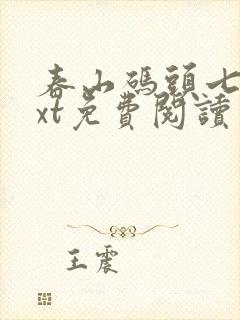 春山碼頭七
xt免費閱讀
王震